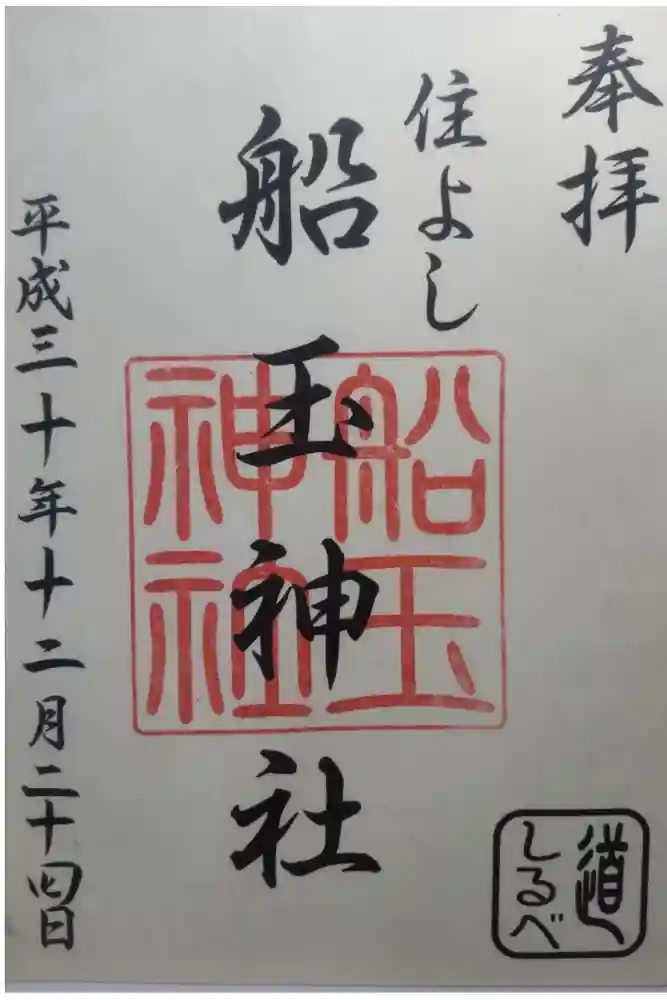 奉拝
住よし
船玉神社
船玉
神社
平成三十年十二月二十四日
道
しるべ